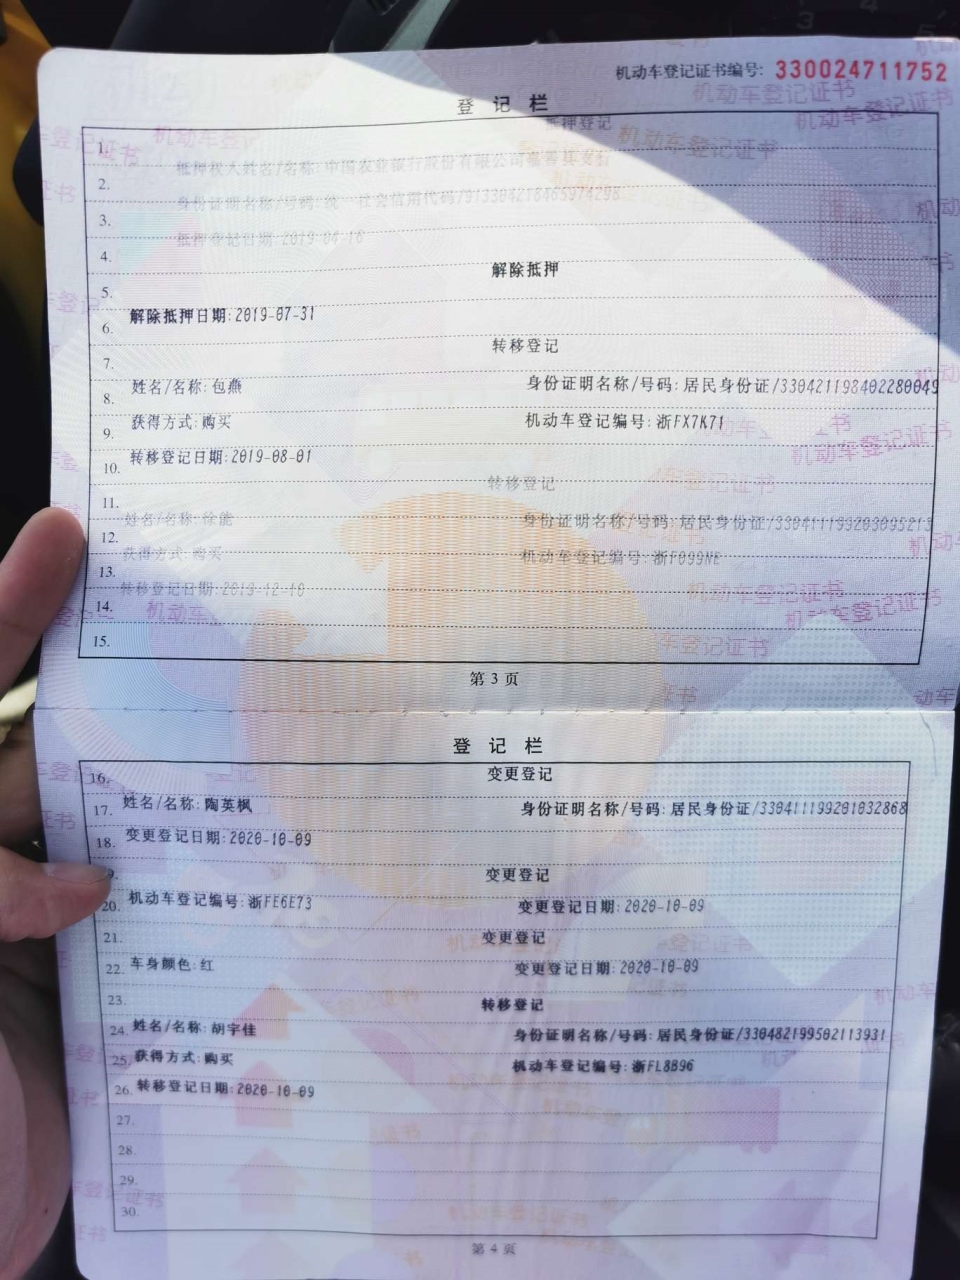 机动车登记证书编号: 330024711752
登 记 栏
抵押登记
1.
抵押权人姓名/名称:中国农业银行股份有限公司嘉善县支行
2.
身份证明名称/号码:统一社会信用代码/
3.
抵押登记日期:2019-04-16
4.
解除抵押
5.
解除抵押日期:2019-07-31
6.
转移登记
7.
姓名/名称:包燕 身份证明名称/号码:居民身份证/330421198402280049
8.
获得方式:购买 机动车登记编号:浙FX7K71
9.
转移登记日期:2019-08-01
10.
转移登记
11.
姓名/名称:徐能 身份证明名称/号码:居民身份证/
12.
获得方式:购买 机动车登记编号:浙F099NE
13.
转移登记日期:2019-12-10
14.
15.
第 3 页
登 记 栏
16. 变更登记
17. 姓名/名称:陶英枫 身份证明名称/号码:居民身份证/330411199201032868
18. 变更登记日期:2020-10-09
变更登记
20. 机动车登记编号:浙FE6E73 变更登记日期:2020-10-09
21. 变更登记
22. 车身颜色:红 变更登记日期:2020-10-09
23. 转移登记
24. 姓名/名称:胡宇佳 身份证明名称/号码:居民身份证/330482199502113931
25. 获得方式:购买 机动车登记编号:浙FL8B96
26. 转移登记日期:2020-10-09
27.
28.
29.
30.
第 4 页